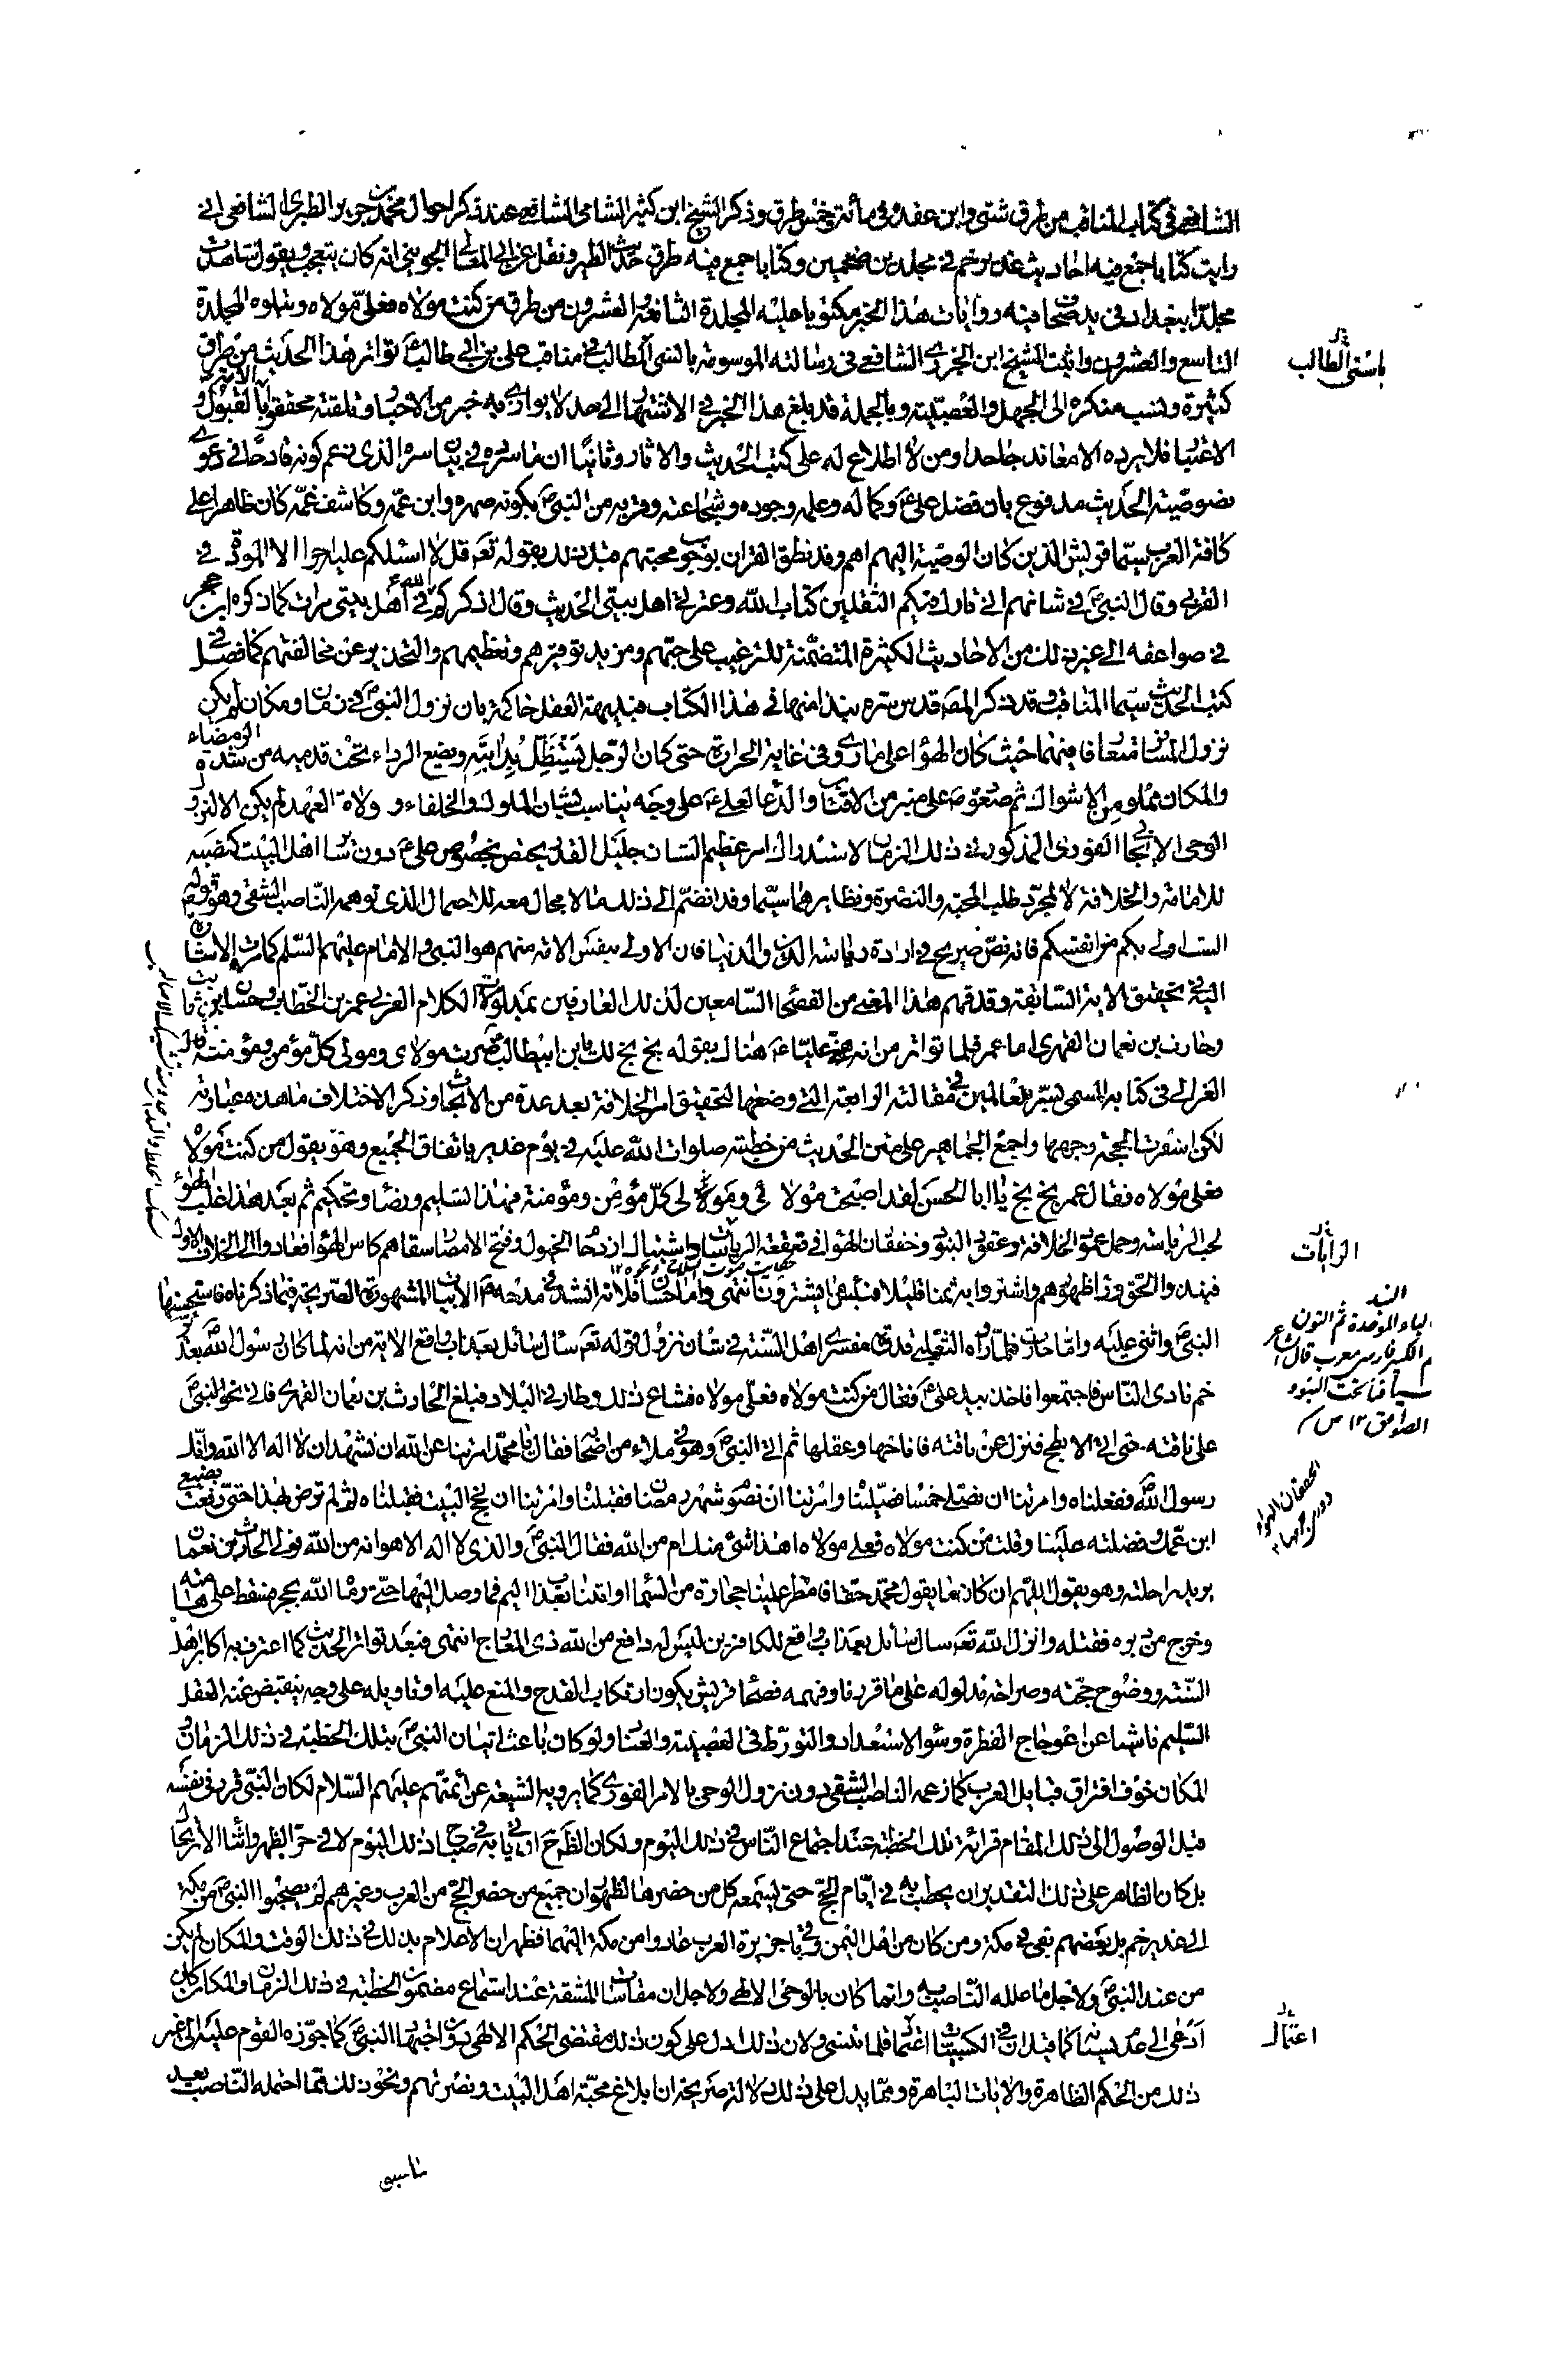 الشافعي في كتاب المناقب من طرق شتى وابن عقدة في مائة وخمس طرق وذكر الشيخ ابن كثير الشامي الشافعي عند ذكر احوال محمد بن جرير الطبري الشافعي اني
رايت كتابا جمع فيه احاديث غدير خم في مجلدين ضخمين وكتابا جمع فيه طرق حديث الطير ونقل عن ابي المعالي الجويني انه كان يتعجب ويقول شاهدت
مجلدا ببغداد في يد صحاف فيه روايات هذا الخبر مكتوبا عليه المجلدة الثامنة والعشرون من طرق من كنت مولاه فعلي مولاه ويتلوه المجلدة
التاسع والعشرون واثبت الشيخ ابن الجزري الشافعي في رسالته الموسومة باسنى المطالب في مناقب علي بن ابي طالب تواتر هذا الحديث من طرق
كثيرة ونسب منكره الى الجهل والعصبية وبالجملة قد بلغ هذا الخبر في الاشتهار الى حد لا يوازي به خبر من الاخبار وتلقته محققوا الامة بالقبول و
الاعتبار فلا يرده الا معاند جاحد او من لا اطلاع له على كتب الحديث والاثار وثانيا ان ما سره في بيان سره الذي زعم كونه قادحا في دعوى
نصوصية الحديث مدفوع بان فضل علي ع وكماله وعلمه وجوده وشجاعته وقربه من النبي ص بكونه صهره وابن عمه وكاشف غمه كان ظاهرا على
كافة العرب سيما قريش الذين كان الوصية اليهم اهم وقد نطق القران بوجوب محبتهم قبل ذلك بقوله تعه قل لا اسئلكم عليه اجرا الا المودة في
القربى وقال النبي ص في شانهم اني تارك فيكم الثقلين كتاب الله وعترتي اهل بيتي الحديث وقال اذكركم الله في اهل بيتي مرات كما ذكره ابن حجر
في صواعقه الى غير ذلك من الاحاديث الكثيرة المتضمنة للترغيب على حبهم ومزيد توقيرهم وتعظيمهم والتحذير عن مخالفتهم كما فصل في
كتب الحديث سيما المناقب وقد ذكر المص قدس سره نبذا منها في هذا الكتاب فبديهة العقل حاكمة بان نزول النبي ص في زمان ومكان لم يكن
نزول المسافر متعارفا فيهما حيث كان الهواء على ما روي في غاية الحرارة حتى كان الرجل يستظل بدابته ويضع الرداء تحت قدميه من شدة الرمضاء
والمكان مملو من الاشواك ثم صعوده ص على منبر من الاقتاب والدعاء لعلي ع على وجه يناسب لشان الملوك والخلفاء و ولاة العهد لم يكن الا لنزول
الوحي الايجابي الفوري المذكور في ذلك الزمان لاستدراك امر عظيم الشان جليل القدر يختص بخصوص علي ع دون سائر اهل البيت كنصبه
للامامة والخلافة لا لمجرد طلب المحبة والنصرة ونظايرهما سيما وقد انضم الى ذلك ما لا مجال معه للاحتمال الذي توهمه الناصب الشقي وهو قوله ص
الست اولى بكم من انفسكم فانه نص صريح في ارادة رياسة الدين والدنيا فان الاولى بنفس الامة منهم هو النبي والامام عليهم السلم كما مر الاشارة
اليه في تحقيق الاية السابقة وقد فهم هذا المعنى من الفصحاء السامعين لذلك العارفين بمدلولات الكلام العربي عمر بن الخطاب وحسان بن ثابت
وحارث بن نعمان الفهري اما عمر فلما تواتر من انه هنا عليا ع هنالك بقوله بخ بخ لك يابن ابيطالب صرت مولاي ومولى كل مؤمن ومؤمنة قال
الغزالي في كتابه المسمى بسر العالمين في مقالته الرابعة التي وضعها لتحقيق امر الخلافة بعد عدة من الابحاث وذكر الاختلاف ما هذه عبارته
لكن اسفرت الحجة وجهها واجمع الجماهير على متن الحديث من خطبته صلوات الله عليه في يوم غدير باتفاق الجميع وهو يقول من كنت مولاه
فعلي مولاه فقال عمر بخ بخ يا ابا الحسن لقد اصبحت مولائي ومولى كل مؤمن ومؤمنة فهذا تسليم ورضاء وتحكيم ثم بعد هذا غلب الهواء
لحب الرياسة وحمل عمود الخلافة وعقود البنود وخفقان الهواء في قعقعة الرايات واشتباك ازدحام الخيول وفتح الامصار سقاهم كاس الهواء فعادوا الى الخلاف الاول
فنبذوا الحق وراء ظهورهم واشتروا به ثمنا قليلا فبئس ما يشترون انتهى واما حسان فلانه انشد في مدحه ع الابيات المشهورة الصريحة فيما ذكرناه فاستحسنها
النبي ص واثنى عليه واما حارث فلما رواه الثعلبي قدوة مفسري اهل السنة في شان نزول قوله تعه سال سائل بعذاب واقع الاية من انه لما كان رسول الله ص بغدير
خم نادى الناس فاجتمعوا فاخذ بيد علي ع فقال من كنت مولاه فعلي مولاه فشاع ذلك وطار في البلاد فبلغ الحارث بن نعمان الفهري فاتى نحو النبي ص
على ناقته حتى اتى الابطح فنزل عن ناقته فاناخها وعقلها ثم اتى النبي ص وهو في ملاء من اصحابه فقال يا محمد امرتنا عن الله ان نشهد ان لا اله الا الله وانك
رسول الله ففعلناه وامرتنا ان نصلي خمسا فصلينا وامرتنا ان نصوم شهر رمضان فقبلنا وامرتنا ان نحج البيت فقبلناه ثم لم ترض بهذا حتى رفعت بضبعي
ابن عمك ففضلته علينا وقلت من كنت مولاه فعلي مولاه اهذا شئ منك ام من الله فقال النبي ص والذي لا اله الا هو انه من الله فولى الحارث بن نعمان
يريد راحلته وهو يقول اللهم ان كان ما يقول محمد حقا فامطر علينا حجارة من السماء او ائتنا بعذاب اليم فما وصل اليها حتى رماه الله بحجر فسقط على هامته
وخرج من دبره فقتله وانزل الله تعه سال سائل بعذاب واقع للكافرين ليس له دافع من الله ذي المعارج انتهى فبعد تواتر الحديث كما اعترف به اكابر اهل
السنة ووضوح حجته وصراحة مدلوله على ما قررنا وفهمه فصحاء قريش يكون ارتكاب القدح والمنع عليه او تاويله على وجه ينقبض عنه العقل
السليم ناشيا عن اعوجاج الفطرة وسوء الاستعداد والتورط في العصبية والعناد ولو كان باعث اتيان النبي ص بتلك الخطبة في ذلك الزمان و
المكان خوف افتراق قبايل العرب كما زعمه الناصب الشقي دون نزول الوحي بالامر الفوري كما يرويه الشيعة عن ائمتهم عليهم السلام لكان النبي قرر في نفسه
قبل الوصول الى ذلك المقام قرائة تلك الخطبة عند اجتماع الناس في ذلك اليوم ولكان الظاهر ان ياتي به في صباح ذلك اليوم لا في حر الظهر واثناء الارتحال
بل كان الظاهر على ذلك التقدير ان يخطب به في ايام الحج حتى يسمعه كل من حضرها لظهور ان جميع من حضر الحج من العرب وغيرهم لم يصحبوا النبي ص من مكة
الى غدير خم بل بعضهم بقي في مكة ومن كان من اهل اليمن وباقي جزيرة العرب عادوا من مكة اليهما فظهر ان الاعلام بذلك في ذلك الوقت والمكان لم يكن
من عند النبي ص ولاجل ما علله الناصب به وانما كان بالوحي الالهي ولاجل ان مقاسات المشقة عند استماع مضمون الخطبة في ذلك الزمان والمكان كان
ادعى الى عدم نسيانه كما قيل ان في الكسب اغتما قلما تنسى ولان ذلك ادل على كون ذلك مقتضى الحكم الالهي دون اجتهاد النبي ص كما جوزه القوم عليه الى غير
ذلك من الحكم الظاهرة والايات الباهرة ومما يدل على ذلك دلالة صريحة ان ابلاغ محبة اهل البيت ونصرتهم ونحو ذلك مما احتمله الناصب بعيد
باسنى المطالب
الرايات
البند
الباء الموحدة ثم النون
فارسي معرب قال الشاعر
الصواعق ١٢ ص